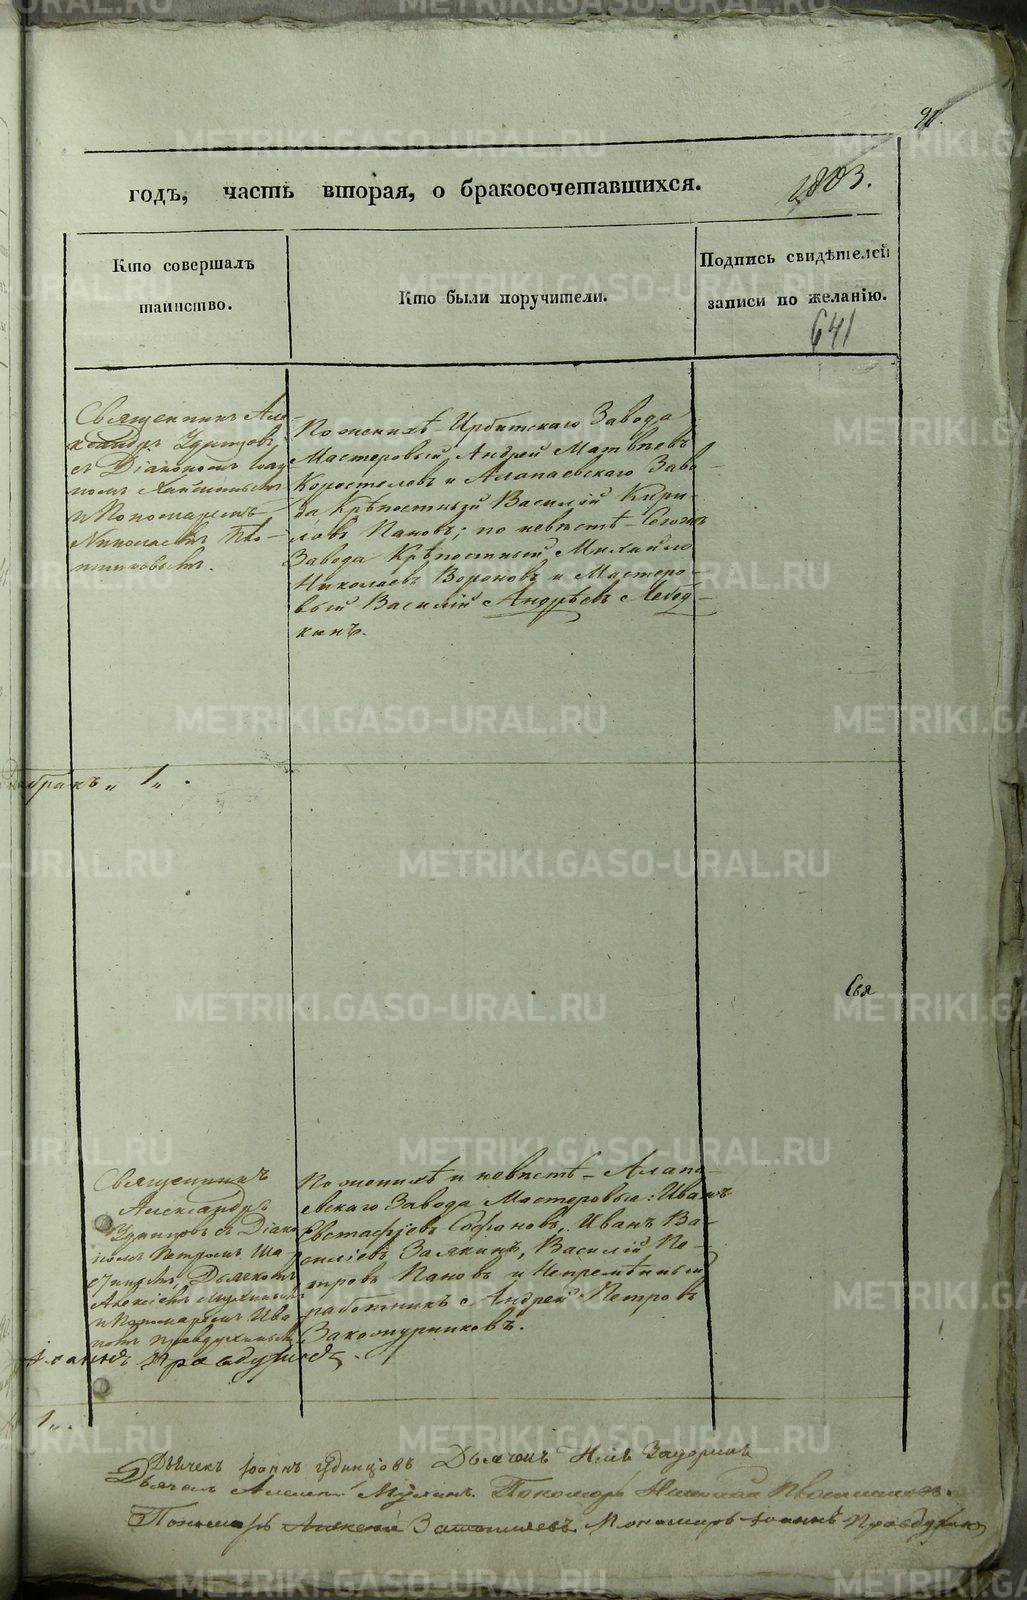 90.
годъ, часть вторая, о бракосочетавшихся. 1803.
Кто совершалъ
таинство.
Кто были поручители.
Подпись свидѣтелей
записи по желанію.
641
Священникъ Але-
ксандръ Удинцовъ
съ Діакономъ Іоан-
номъ
и Пономаремъ
Николаемъ Пѣво-
По женихѣ Ирбитскаго Завода
Мастеровый Андрей Матвѣевъ
Коростелевъ и Алапаевскаго Заво-
да Крѣпостный Василій Кири-
ловъ Пановъ; по невѣстѣ
Завода Крѣпостный Михайло
Николаевъ Вороновъ и Мастеро-
вый Василій Андрѣевъ Лебед-
кинъ.
бракъ „ 1 „ .
Священникъ
Александръ
Удинцовъ съ Діако-
номъ Петромъ Ша-
Дьячкомъ
Алексѣемъ Мухинымъ
и Пономаремъ Ива-
номъ Правдухинымъ
По женихѣ и невѣстѣ Алапа-
евскаго Завода Мастеровые: Иванъ
Евстафіевъ Софоновъ, Иванъ Ва-
силіевъ Залякинъ, Василій Пе-
тровъ Пановъ и Непремѣнный
работникъ Андрей Петровъ
Закожурниковъ.
1 „ .
Дьячекъ Іоаннъ Удинцовъ Дьячекъ
Дьячекъ Алексей Мухинъ. Пономарь Николай
Пономарь Алексей Пономарь Іоаннъ Правдухинъ
METRIKI.GASO-URAL.RU